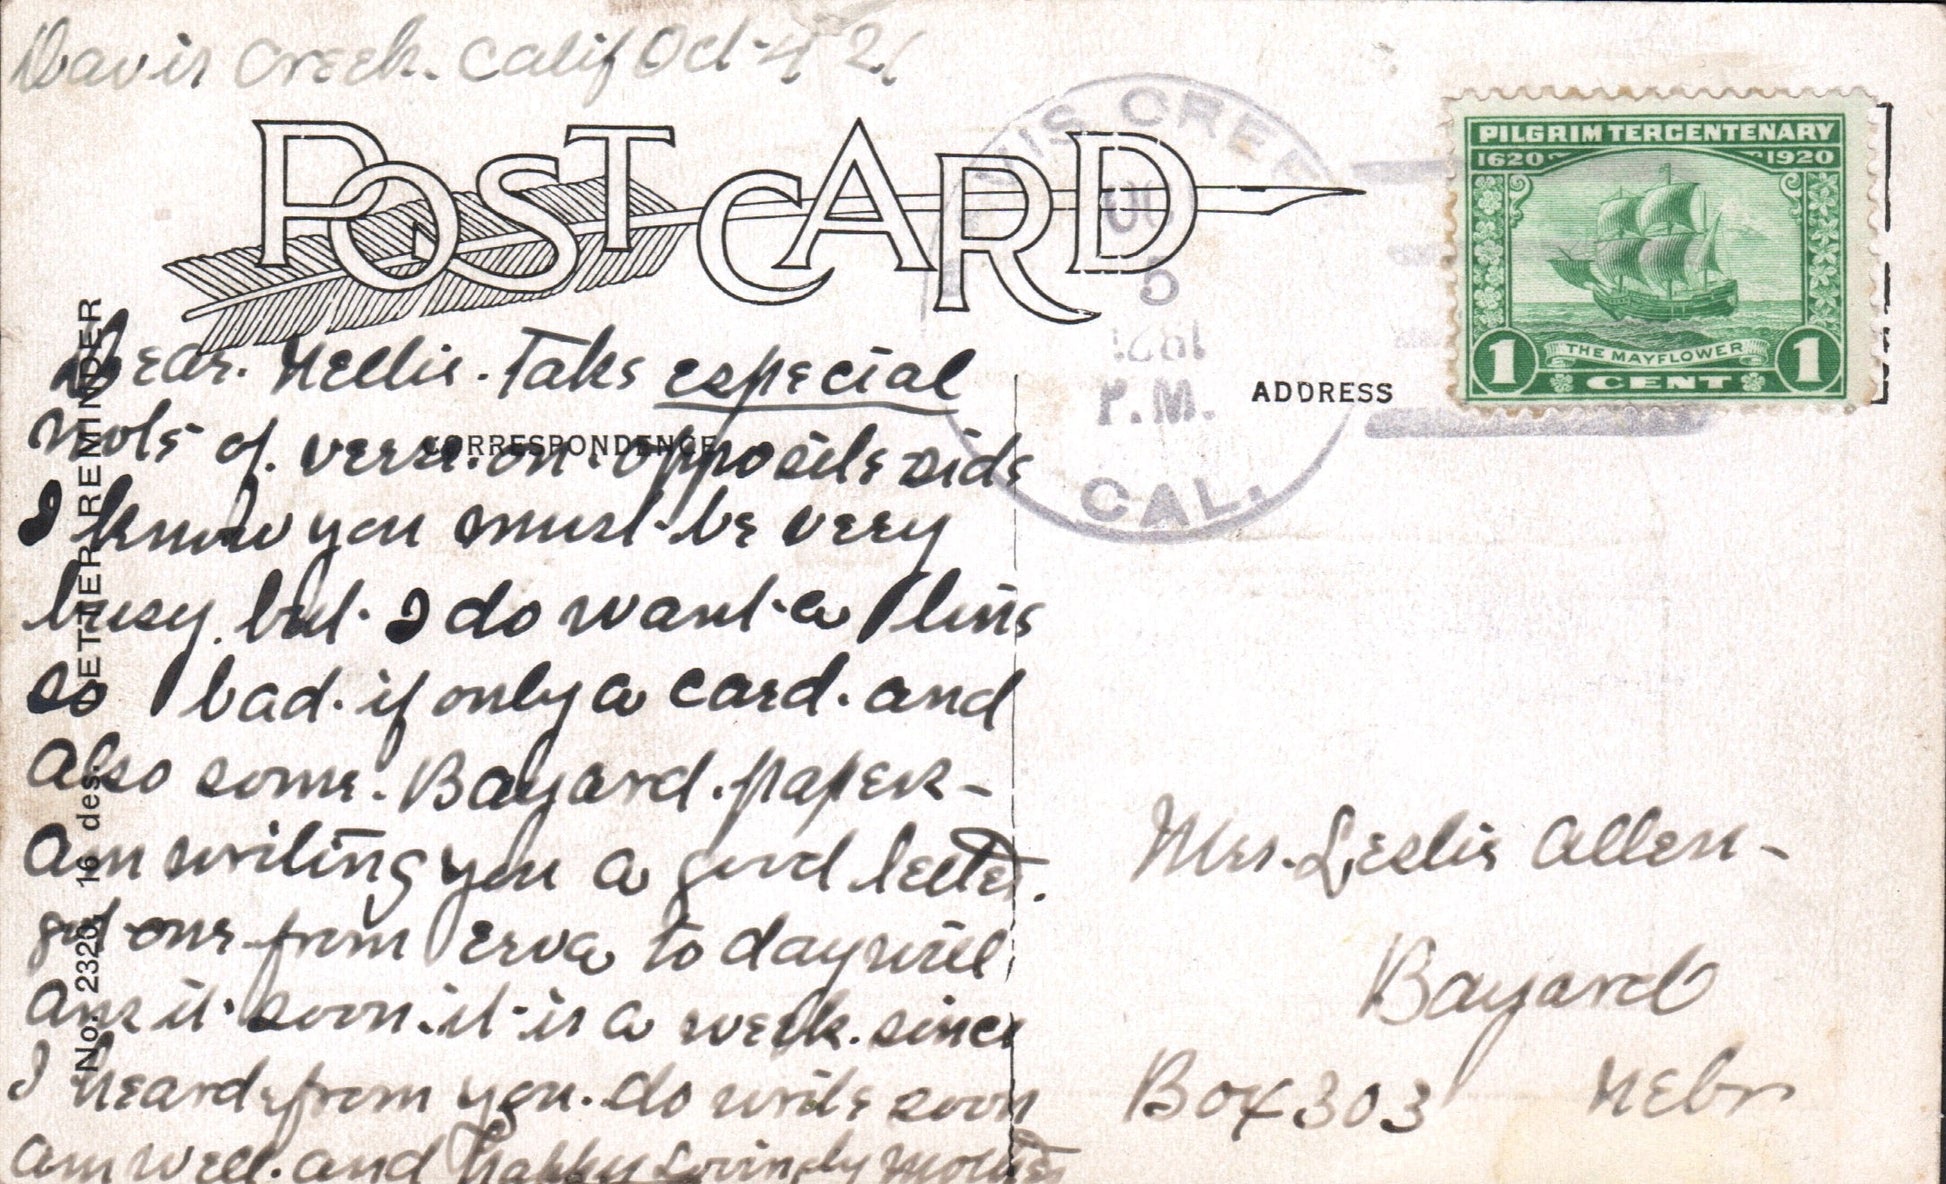 Davis Creek. Calif Oct-4 21
POST CARD
VIS CREE
OC
5
P.M.
CAL.
PILGRIM TERCENTENARY
1620 1920
THE MAYFLOWER
1 CENT 1
ADDRESS
CORRESPONDENCE
No. 2320, 16 des. LETTER REMINDER
Dear. Nellie. Take especial
note of. verse. on. opposite side
I know you must. be very
busy. but. I do want a line
so bad. if only a card. and
also some. Bayard. paper-
am writing you a good letter.
got one from Erva to day will
ans it. soon. it is a week. since
I heard from you. do write soon
am well. and happy Lovingly Mother
Mrs. Leslie Allen-
Bayard
Box 303 Nebr